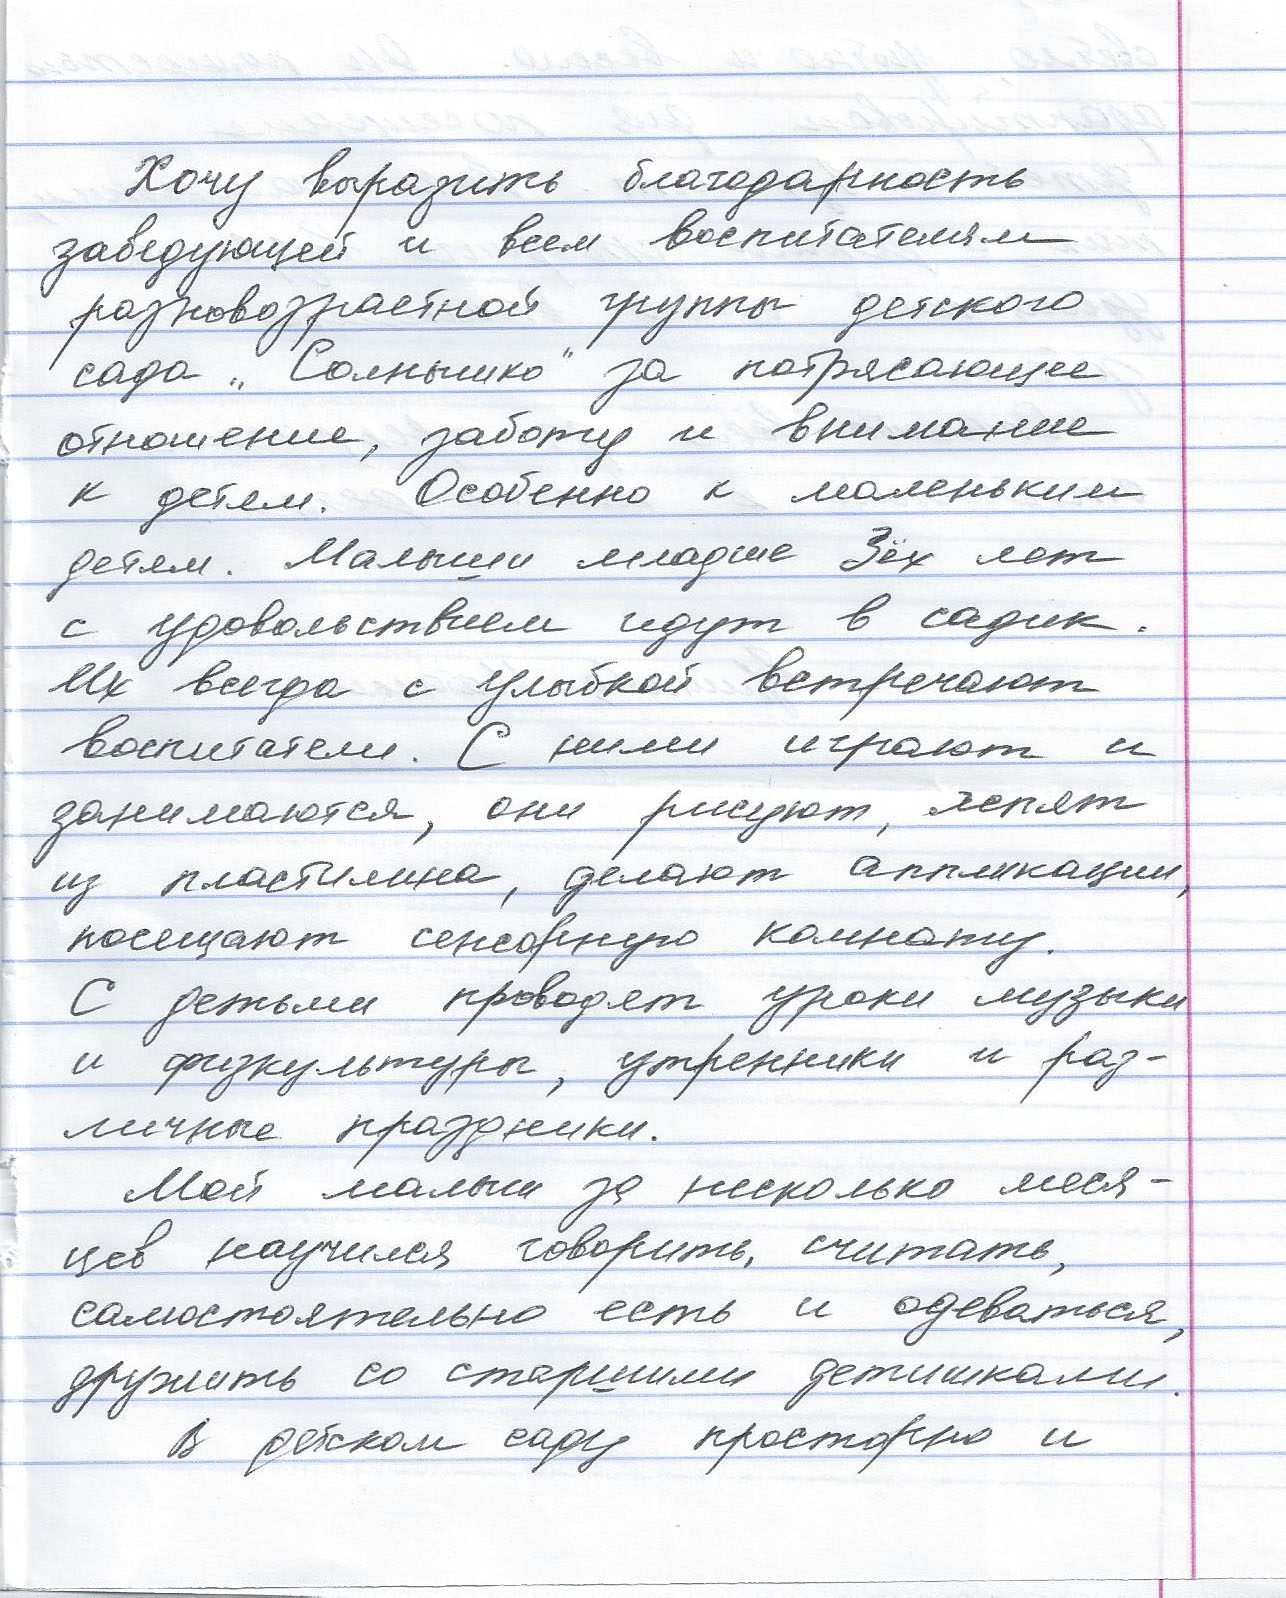 Хочу выразить благодарность
заведующей и всем воспитателям
разновозрастной группы детского
сада „Солнышко" за потрясающее
отношение, заботу и внимание
к детям. Особенно к маленьким
детям. Малыши младше 3ёх лет
с удовольствием идут в садик.
Их всегда с улыбкой встречают
воспитатели. С ними играют и
занимаются, они рисуют, лепят
из пластилина, делают аппликации,
посещают сенсорную комнату.
С детьми проводят уроки музыки
и физкультуры, утренники и раз-
личные праздники.
Мой малыш за несколько меся-
цев научился говорить, считать,
самостоятельно есть и одеваться,
дружить со старшими детишками.
В детском саду просторно и